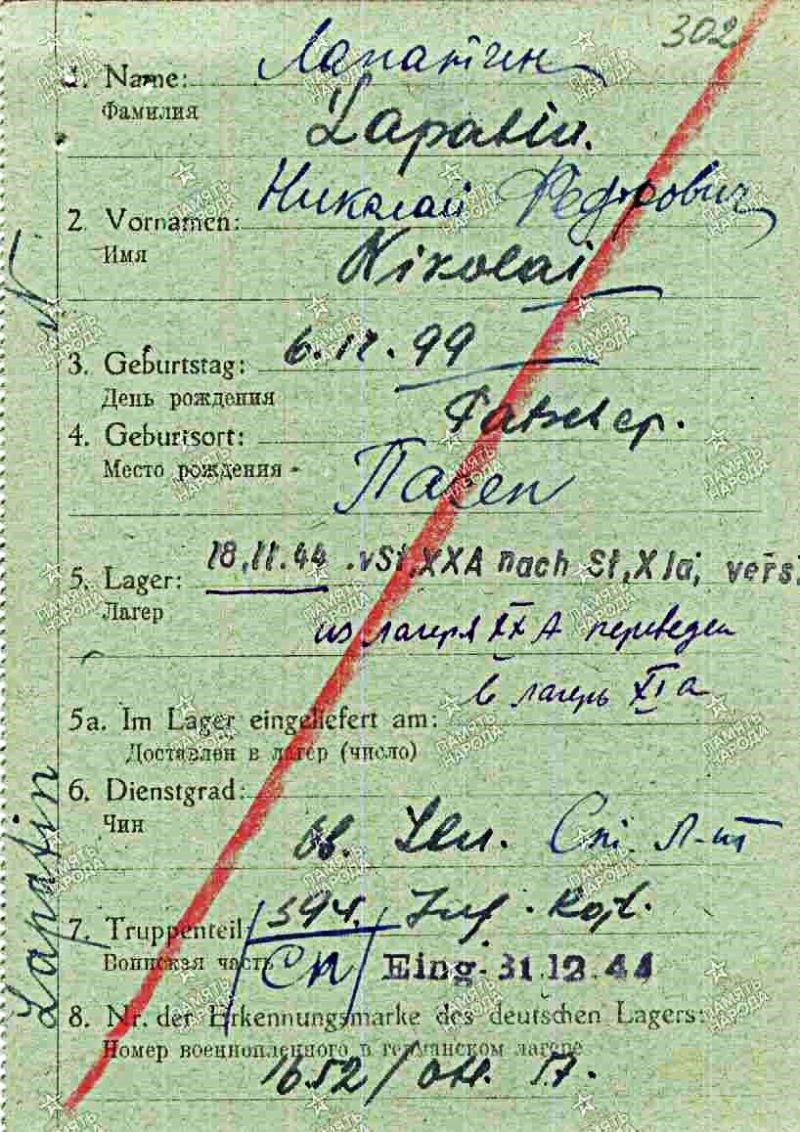 302
1. Name: Лапатин
Фамилия
Lapatin.
Николай Федорович
2. Vornamen:
Имя
Nikolai
3. Geburtstag: 6.12.99
День рождения
4. Geburtsort:
Место рождения
18.11.44 .vSt,XXA nach St,XIa, vers.
5. Lager:
Лагер
из лагеря XX А переведен
в лагерь XI а
5a. Im Lager eingeliefert am:
Доставлен в лагер (число)
6. Dienstgrad:
Чин
Len. Ст. Л-т
7. Truppenteil: 394. Inf.
Воинская часть СП Eing. 31.12.44
8. Nr. der Erkennungsmarke des deutschen Lagers:
Номер военнопленного в германском лагере
1652/ 57.
Lapatin
ПАМЯТЬ НАРОДА